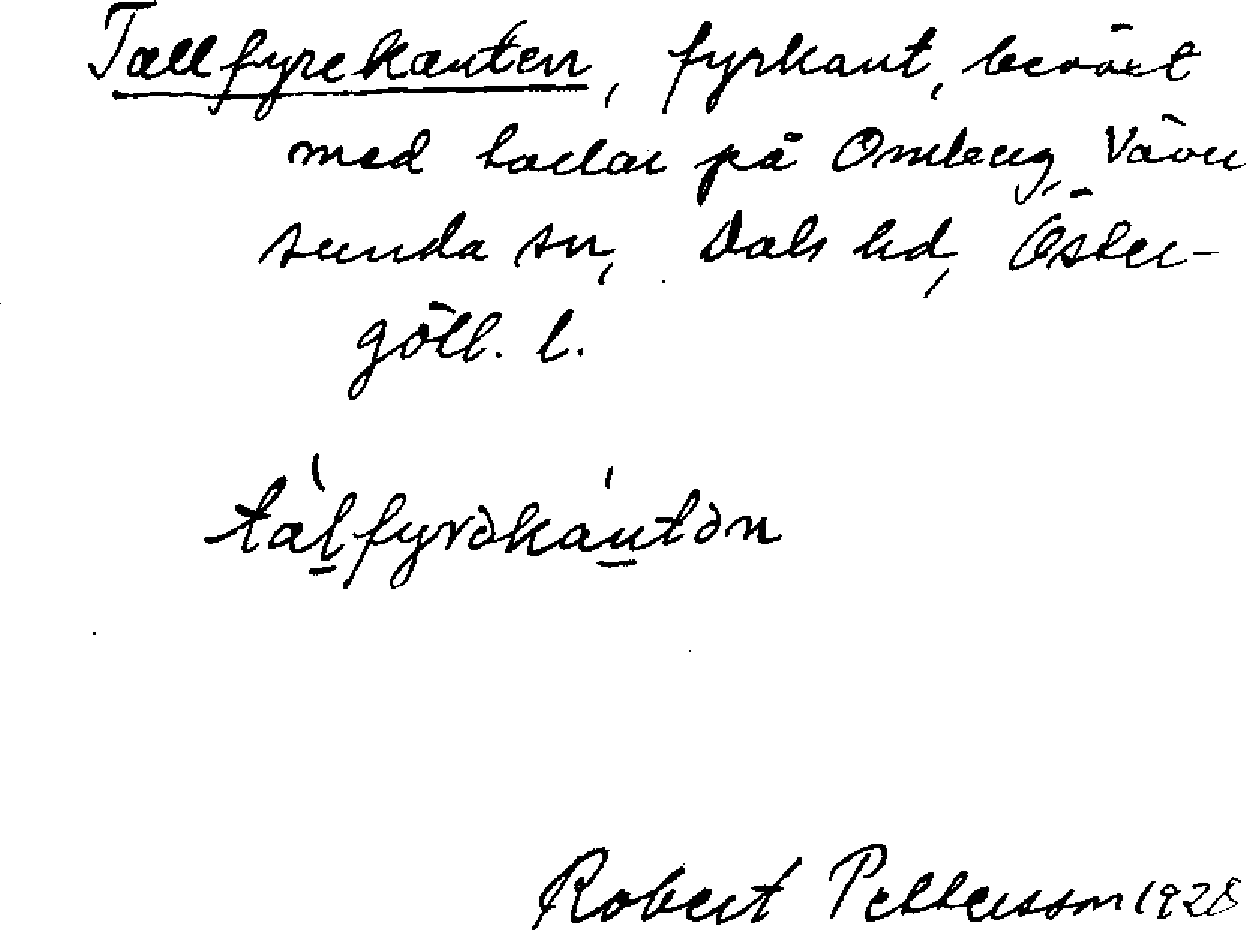 Tallfyrekanten, fyrkant, beväxt
med tallar på Omberg, Väver
sunda sn, Dals hd, Öster-
götl. l.
tàl̲fyrəkán̲tən
Robert Pettersson 1928